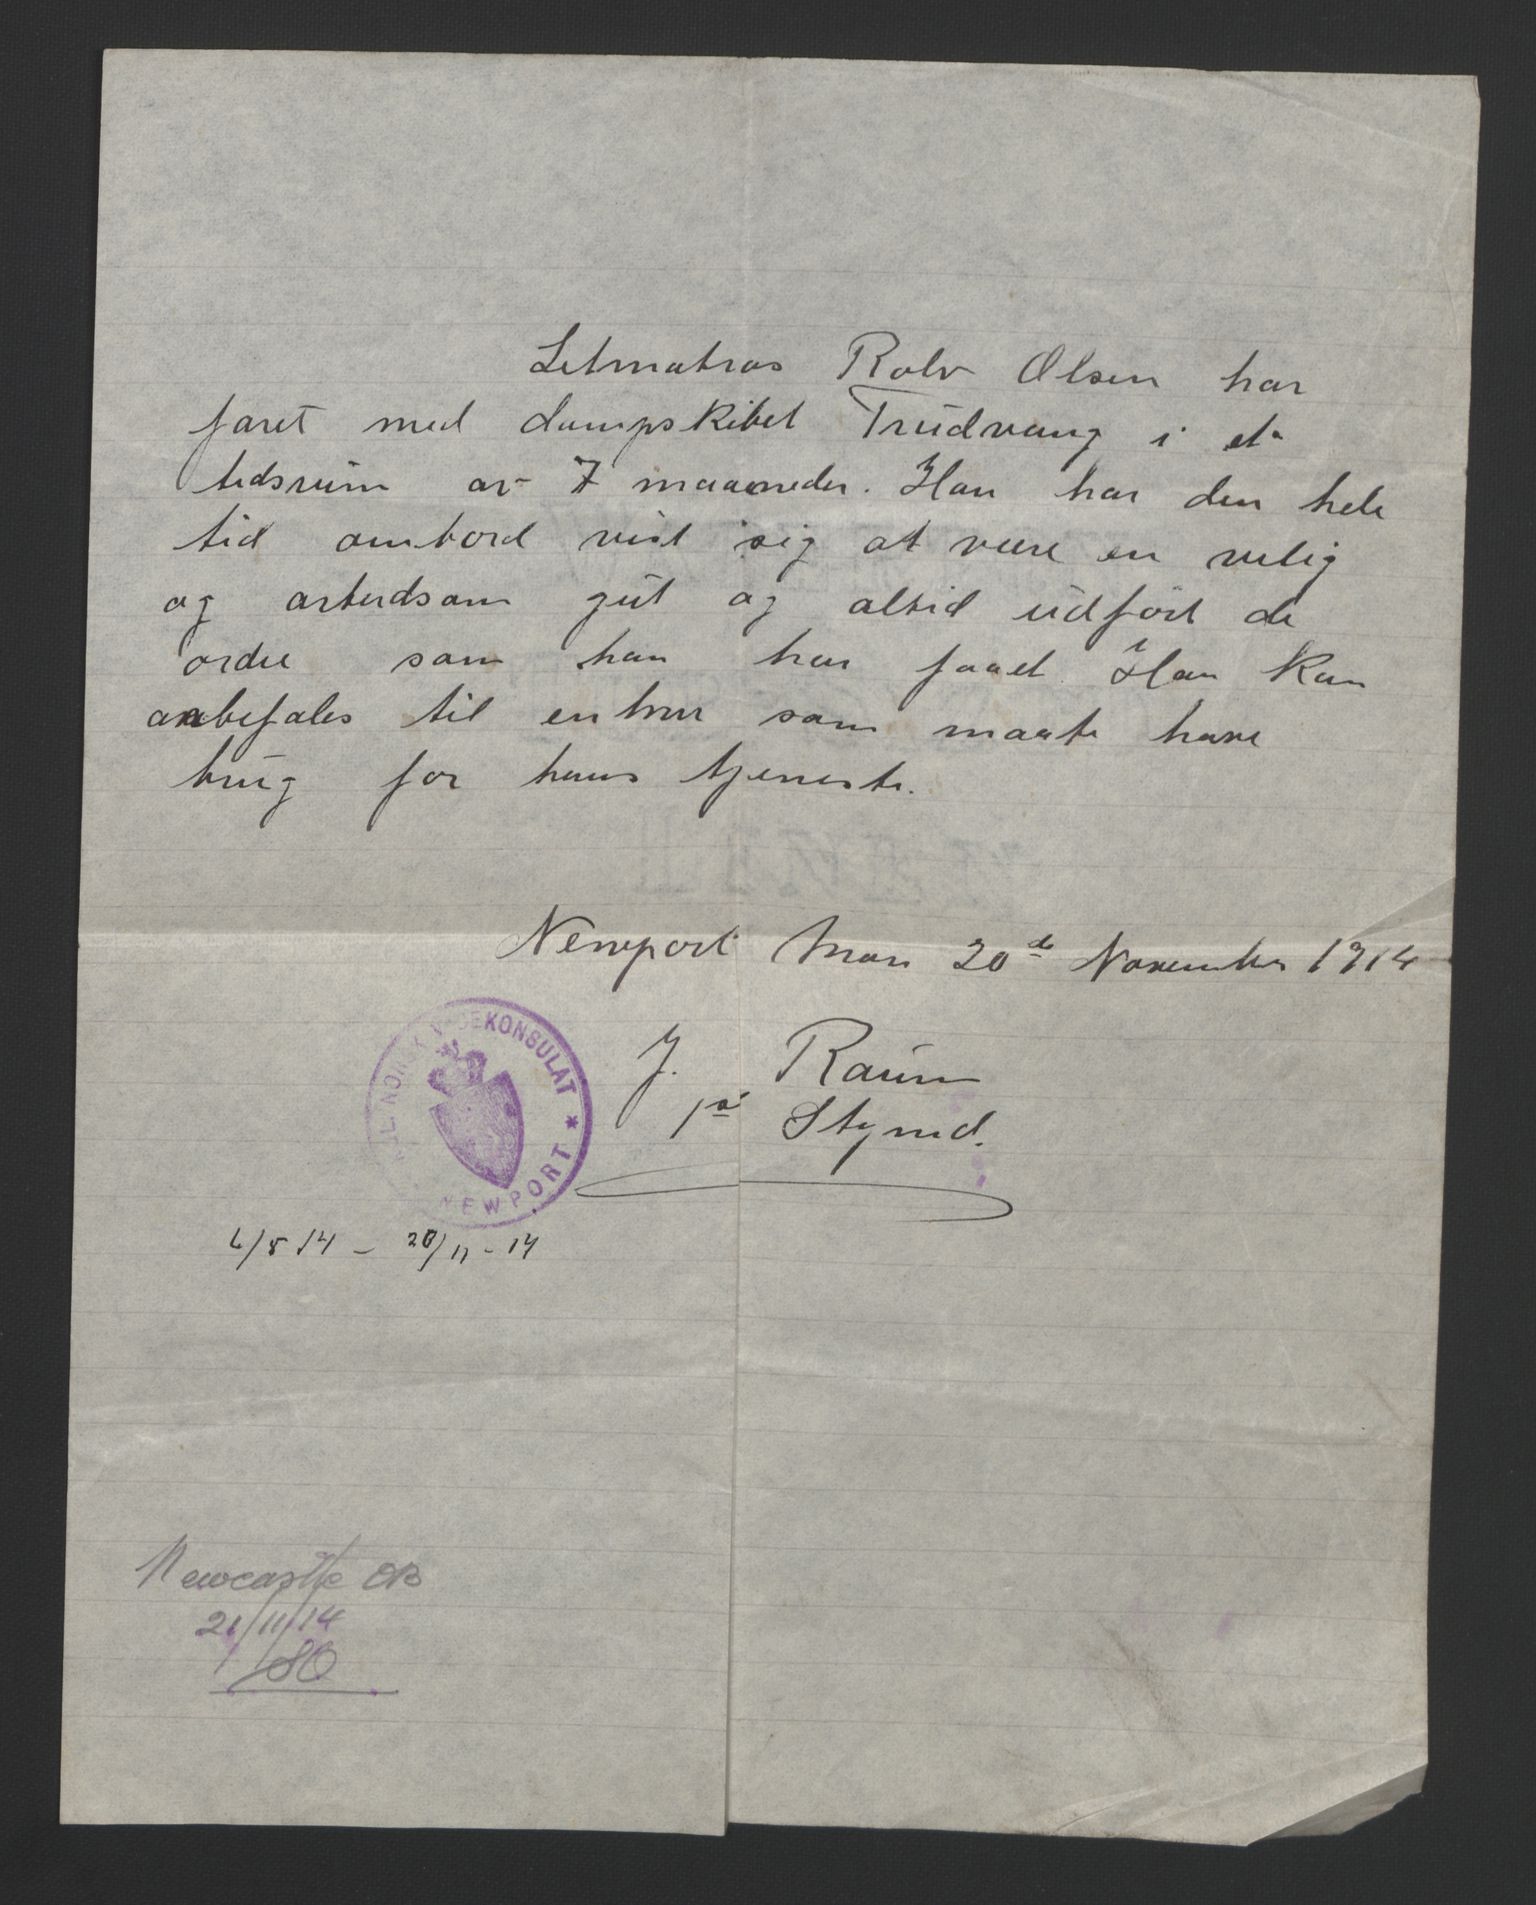 Letmatros Rolv Olsen har
faret med dampskibet Trudvang i et
tidsrum av 7 maaneder. Han har den hele
tid ombord vist sig at være en velig
og arbeidsom gut og altid udført de
ordre som han har faaet. Han kan
anbefales til enhver som maate have
brug for hans tjeneste.
Newport Mon 20de November 1914
J. Raum
1ste Styrmd.
KGL. NORSK VICEKONSULAT * NEWPORT
6/5 14 – 20/11 - 14
Newcastle OB
21/11/14
SO